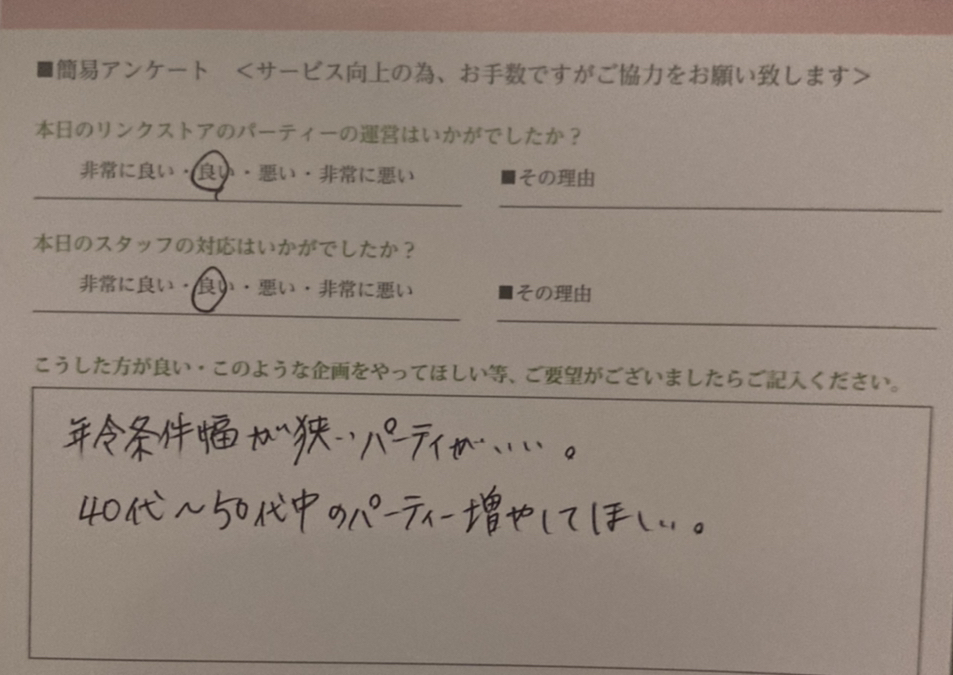 ■簡易アンケート ＜サービス向上の為、お手数ですがご協力をお願い致します＞
本日のリンクストアのパーティーの運営はいかがでしたか？
非常に良い・良い・悪い・非常に悪い ■その理由
本日のスタッフの対応はいかがでしたか？
非常に良い・良い・悪い・非常に悪い ■その理由
こうした方が良い・このような企画をやってほしい等、ご要望がございましたらご記入ください。
年令条件幅が狭いパーティがいい。
40代～50代中のパーティー増やしてほしい。